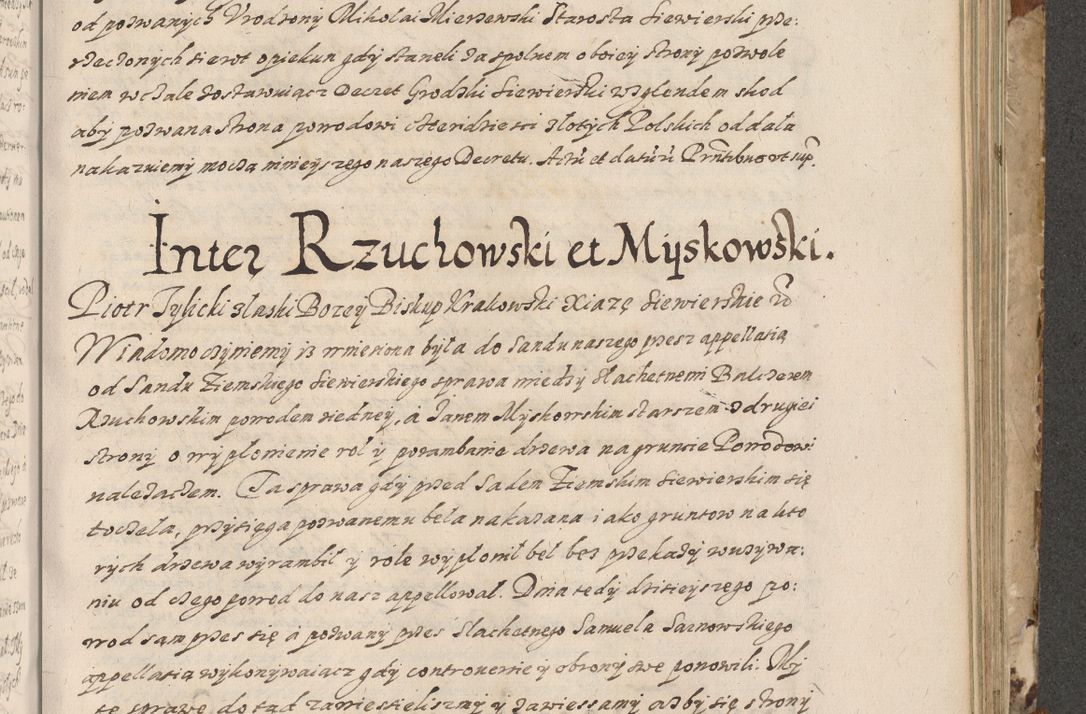 od pozwanych Vrodzony Mikolai Mierzewski Starosta Siewierski prze:
rzeczonych sierot opiekun gdy staneli za spolnem oboiey strony pozwole
niem w cale zostawuiącz Decret Grodzki Siewierski wzglendem szkod
aby pozwana strona powodowi czterdziesci złotych Polskich oddała
nakazuiemy moczą mnieyszego naszego Decretu. Actũ et datũ Prñtibus vt sup.
Inter Rzuchowski et Myskowski.
Piotr Tylicki z łaski Bozey Biskup Krakowski Xiązę Siewierskie
Wiadomo czyniemy iz wniesiona była do Sandu naszego przez appellatią
od Sandu Ziemskiego Siewierskiego sprawa między slachetnemi Balcerem
Rzuchowskim powodem iedney, a Janem Myskowskim starszem z drugiei
strony o wyplonienie rol y porambanie drzewa na gruncie Powodowi
nalezączem. Ta sprawa gdy przed Sądem Ziemskim Siewierskim się
toczeła, przysięga pozwanemu beła nakazana iako gruntow na kto
rych drzewa wyrambił y role wyplonił beł bez przekazy w uzywa:
niu od czego powod do nasz appellował. Dnia tedy dzisieyszego po:
wod sam przes się a pozwany przes slachetnego Samuela Sarnowskiego
appellatią wykonywaiącz gdy controuersie y obrony swe ponowili. My
tę sprawę do tąd zawiesieliszmy y zawieszamy ażby się strony